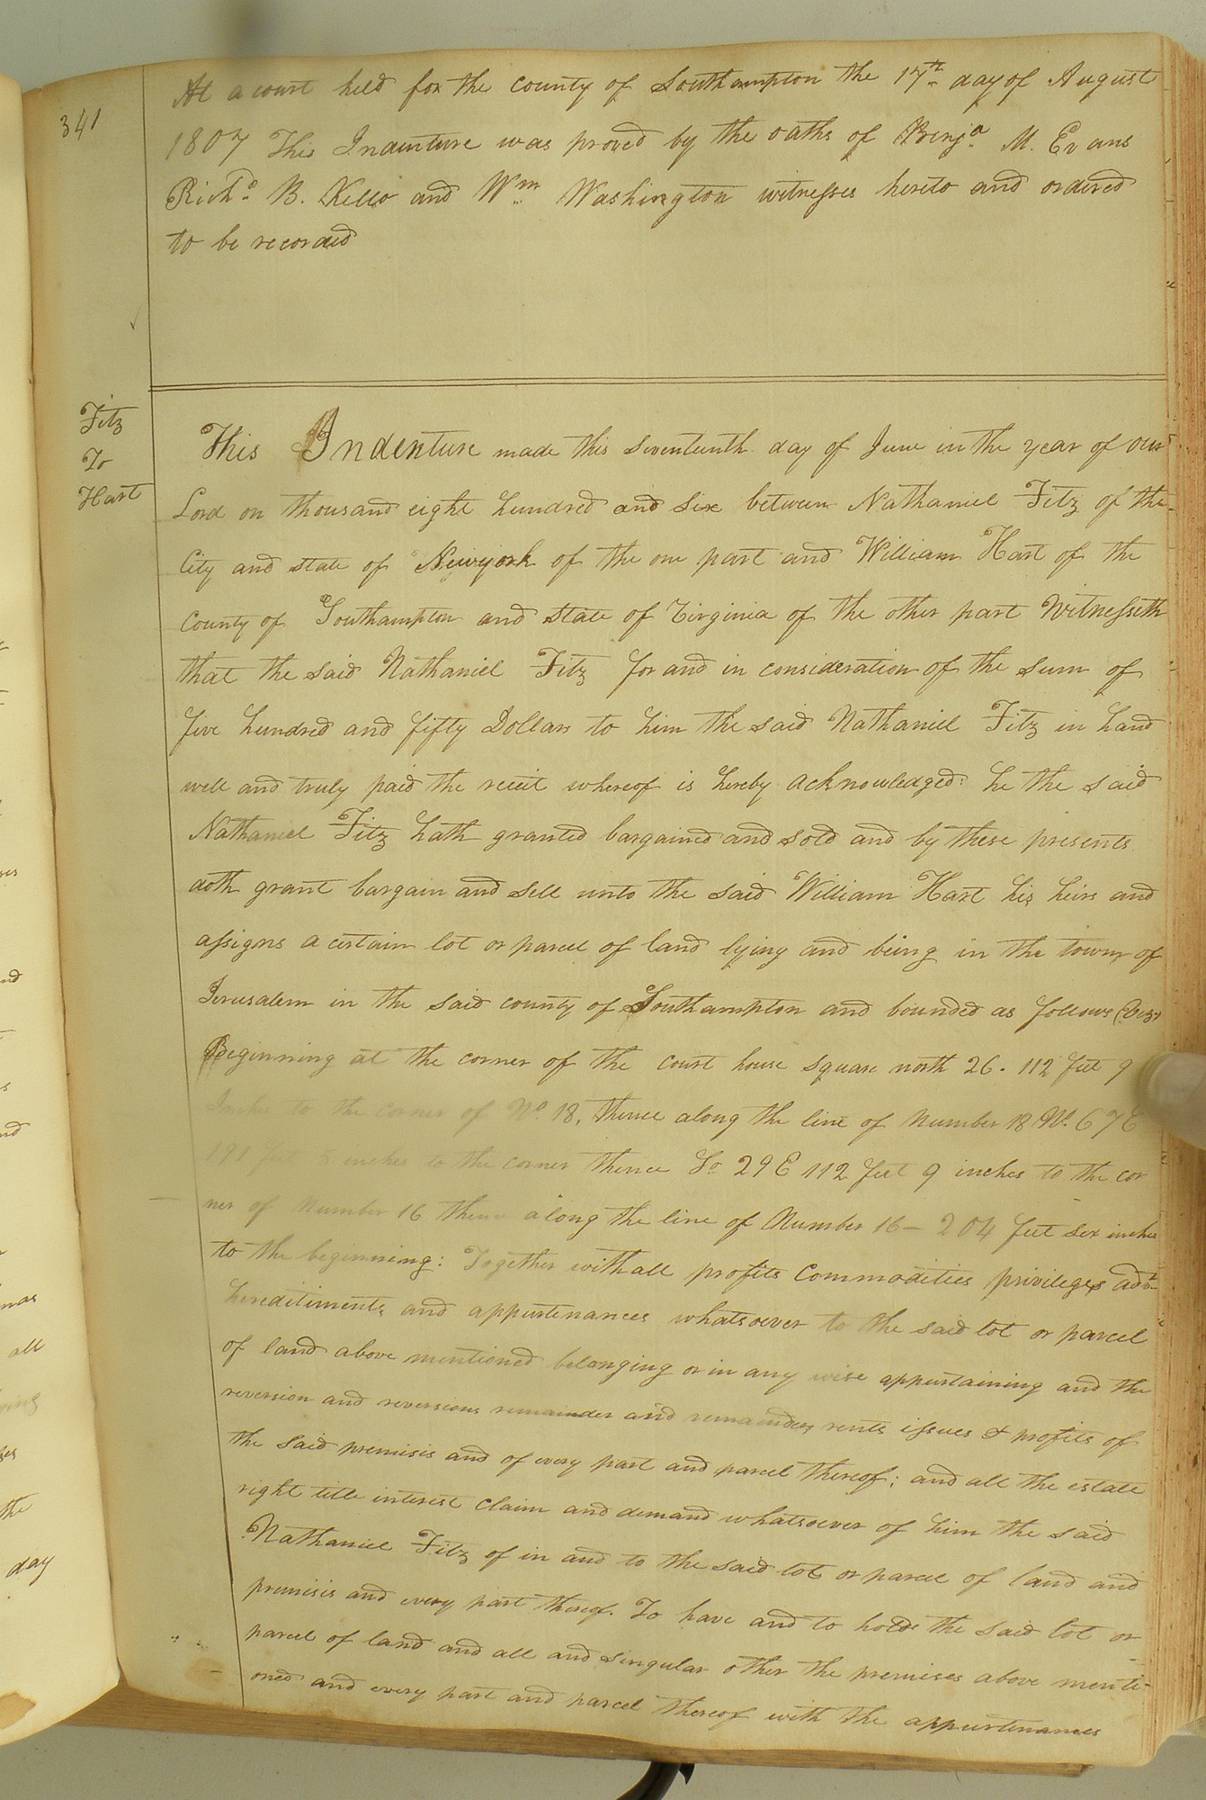 341
At a court held for the county of Southampton the 17th day of August
1807 This Indenture was proved by the oaths of Benja. M. Evans
Richd. B. Kello and Wm. Washington witnesses hereto and ordered
to be recorded
Fitz
To
Hart
This Indenture made this seventeenth day of June in the year of our
Lord on thousand eight hundred and six between Nathaniel Fitz of the
City and state of Newyork of the one part and William Hart of the
County of Southampton and state of Virginia of the other part Witnesseth
that the said Nathaniel Fitz for and in consideration of the sum of
five hundred and fifty Dollars to him the said Nathaniel Fitz in hand
well and truly paid the reciit whereof is hereby acknowledged: he the said
Nathaniel Fitz hath granted bargained and sold and by these presents
doth grant bargain and sell unto the said William Hart his heirs and
assigns a certain lot or parcel of land lying and being in the town of
Jerusalem in the said county of Southampton and bounded as follows (Viz)
Beginning at the corner of the court house square north 26. 112 feet 9
Inches to the corner of No. 18, thence along the line of Number 18 No. 67 E
191 feet 8 inches to the corner thence So 29 E 112 feet 9 inches to the cor
ner of Number 16 thence along the line of Number 16 - 204 feet six inches
to the beginning: Together with all profits Commodities privileges
hereditiments and appurtenances whatsoever to the said lot or parcel
of land above mentioned belonging or in any wise appurtaining and the
reversion and reversions remainder and remainders rents issues & profits of
the said premisis and of every part and parcel thereof; and all the estate
right title interest claim and demand whatsoever of him the said
Nathaniel Fitz of in and to the said lot or parcel of land and
premisis and every part thereof. To have and to hold the said lot or
parcel of land and all and singular other the premises above menti-
oned and every part and parcel thereof with the appurtenances